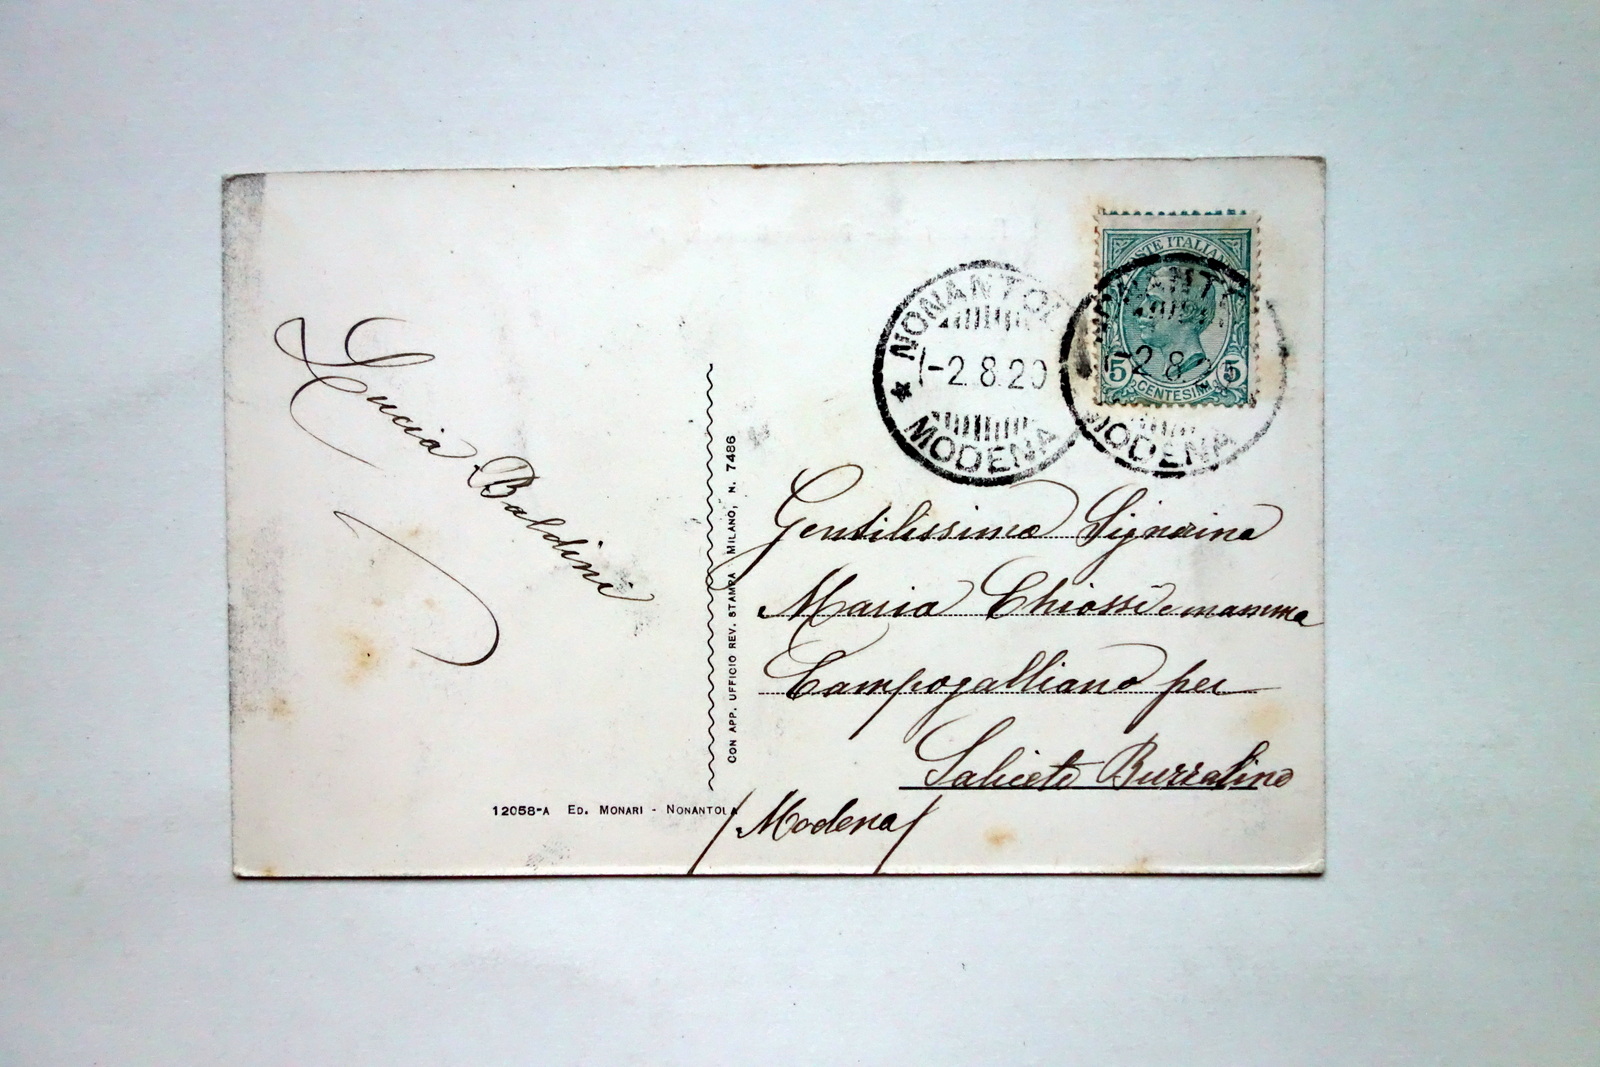 POSTE ITALIANE
5 CENTESIMI 5
NONANTOLA
1-2.8.20
MODENA
NONANTOLA
1-2.8.20
MODENA
Lucia Baldini
Gentilissima Signorina
Maria Chiossi e mamma
Campogalliano per
Saliceto Buzzalino
(Modena)
CON APP. UFFICIO REV. STAMPA MILANO, N. 7486
12058-A ED. MONARI - NONANTOLA